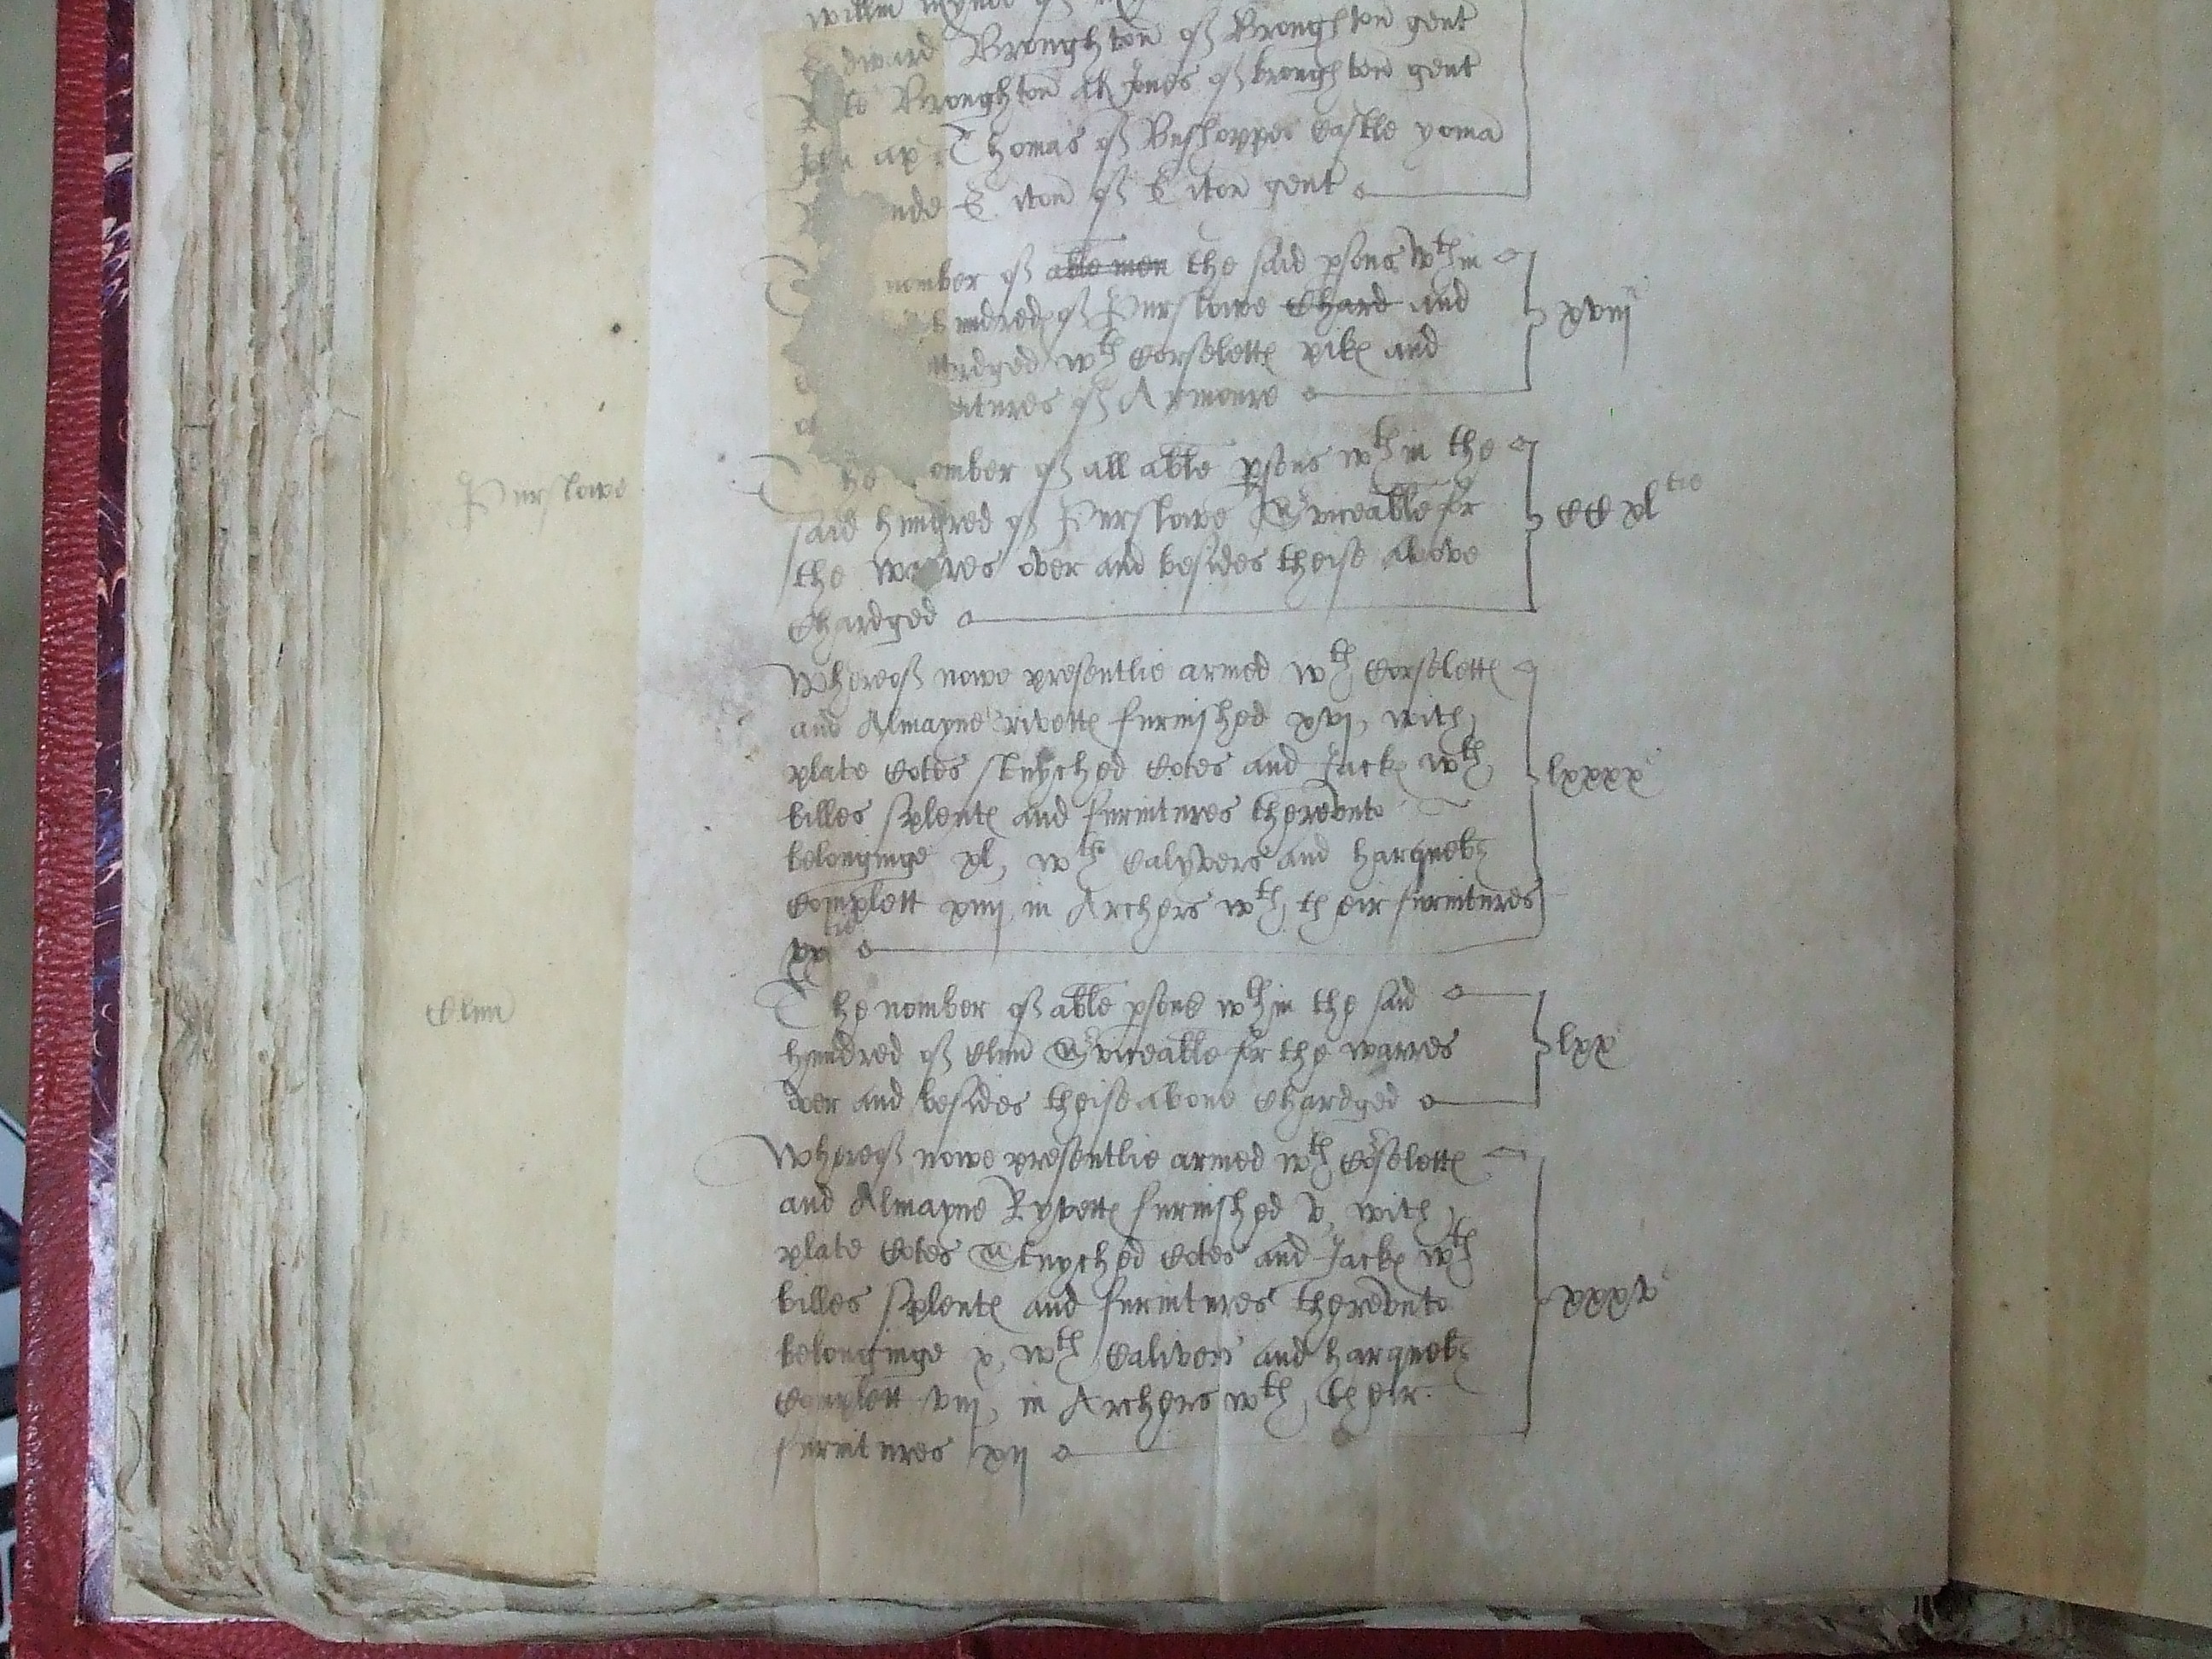 Edward Broughton of Broughton gent
Broughton als Jones of broughton gent
ap Thomas of Busshoppes Castle yoma
Eiton of Eiton gent
nomber of able men the said psons wth in
hundred of Purslowe Chard and xviij
wth Corselette pike and
of Armoure
The nomber of all able psons wth in the
Purslowe
said hundred of Purslowe Sviceable for CC xl tie
the warres over and besides theise above
Chardged
Whereof nowe presentlie armed wth Corselette
and Almayne rivette furnished xvj, with
plate Cotes stuyched Cotes and Jacke wth lxxxx
billes splente and furnitures therevnto
belonginge xl, wth Calyvers and harquebz
Complett xiiij, in Archers wth their furnitures
xx tie
The nomber of able psons wth in the said
Clun
hundred of Clun Sviceable for the warres lxx
over and besides theise above Chardged
Whereof nowe presentlie armed wth Corselette
and Almayne Ryvette furnished v, with
plate Cotes Stuyched Cotes and Jacke wth
billes splente and furnitures therevnto xxxv
belonginge x, wth Calivers and harquebz
Complett viij, in Archers wth their
furnitures xij